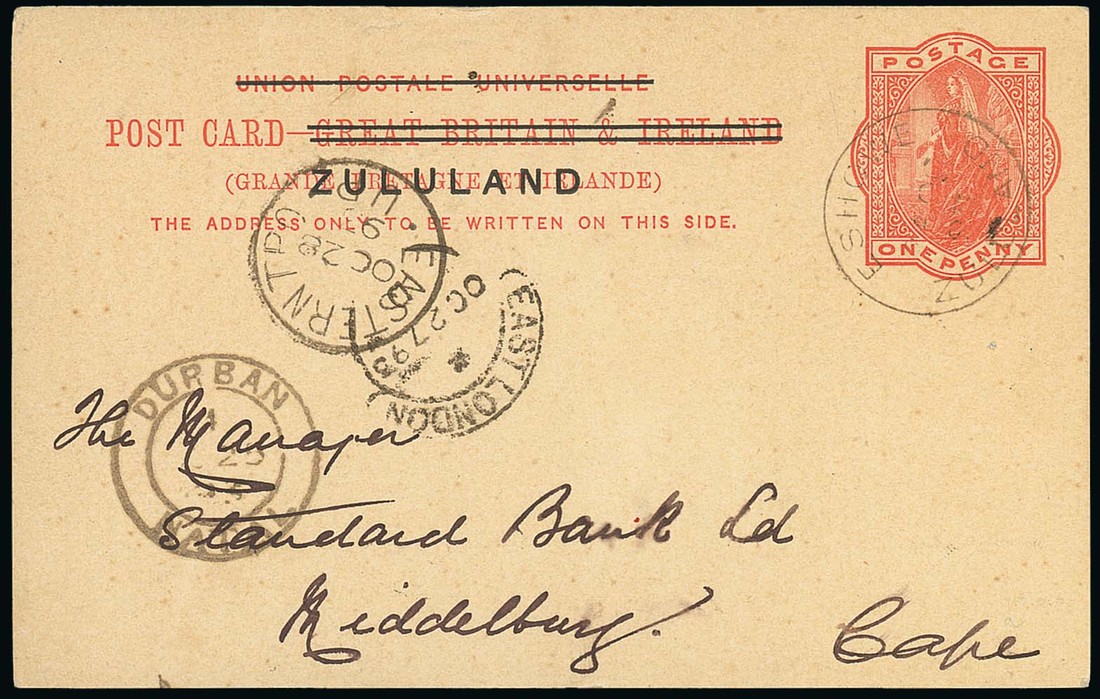 UNION POSTALE UNIVERSELLE
POST CARD—GREAT BRITAIN & IRELAND
ZULULAND
(GRANDE BRETAGNE ET IRLANDE)
THE ADDRESS ONLY TO BE WRITTEN ON THIS SIDE.
POSTAGE
ONE PENNY
ESHOWE
EASTERN T.P.O
UP
OC 28
EAST LONDON
OC 27 93
DURBAN
NATAL
The Manager
Standard Bank Ld
Middelburg.
Cape